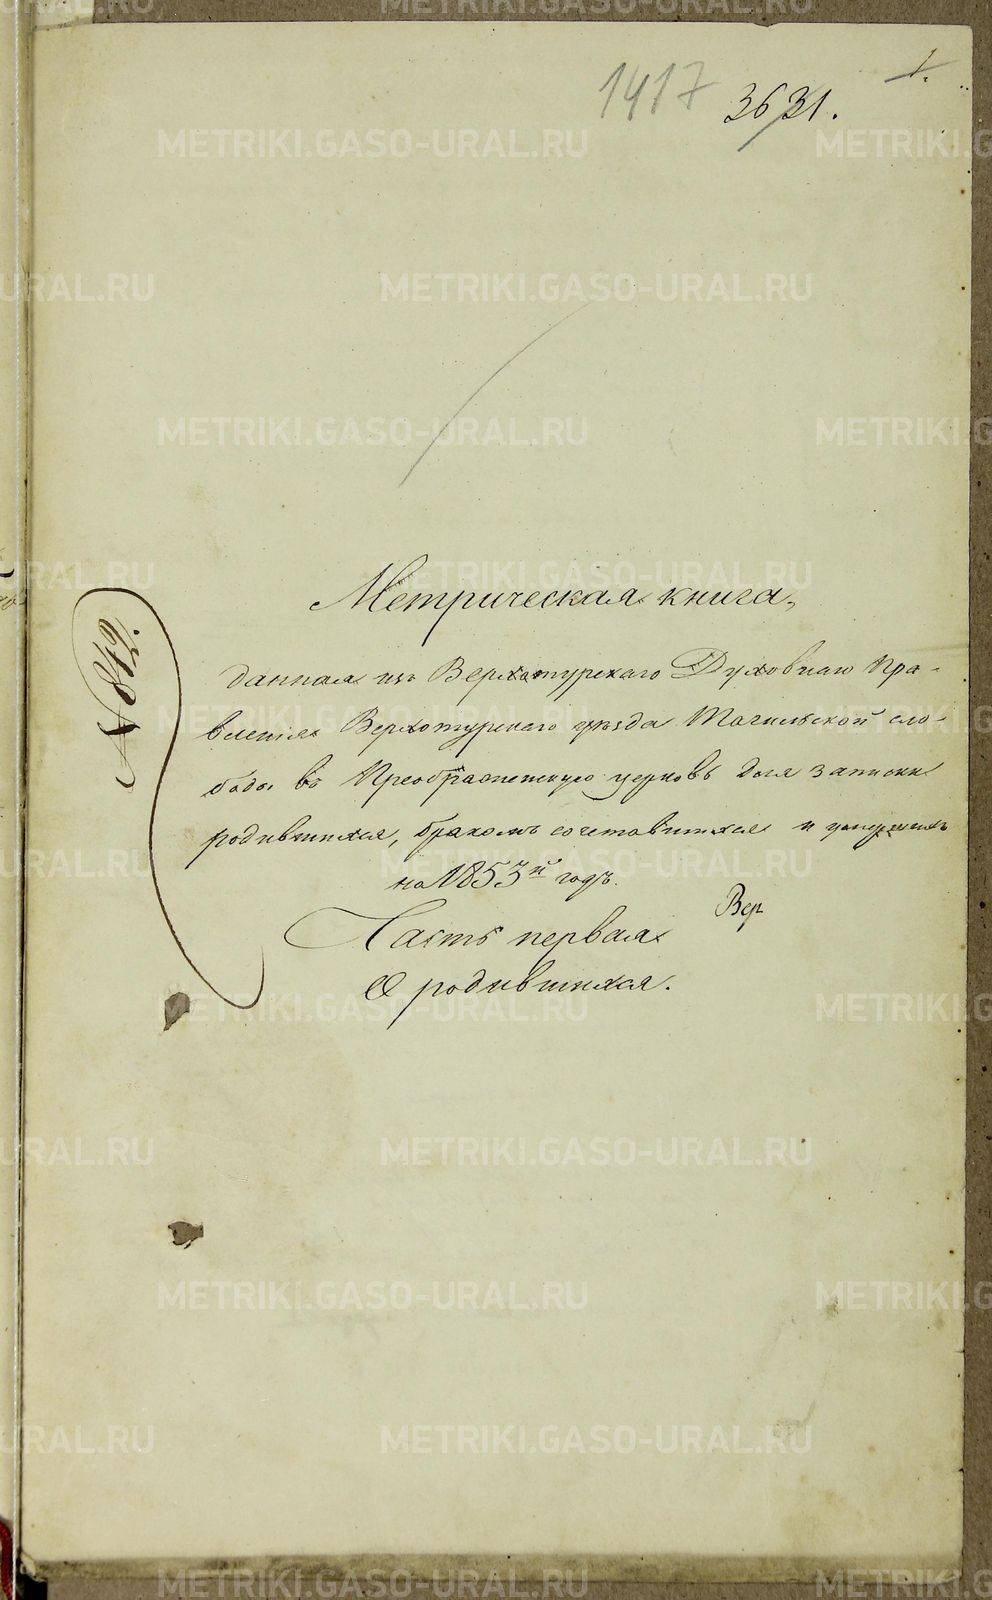 1.
1417
3631.
№ 842.
Метрическая книга,
данная изъ Верхотурскаго Духовнаго Пра-
вленія Верхотурскаго уѣзда Тагильской сло-
боды въ Преображенскую церковь для записки
родившихся, бракомъ сочетавшихся и умершихъ
на 1853й годъ.
Вер
Часть первая
О родившихся.
METRIKI.GASO-URAL.RU